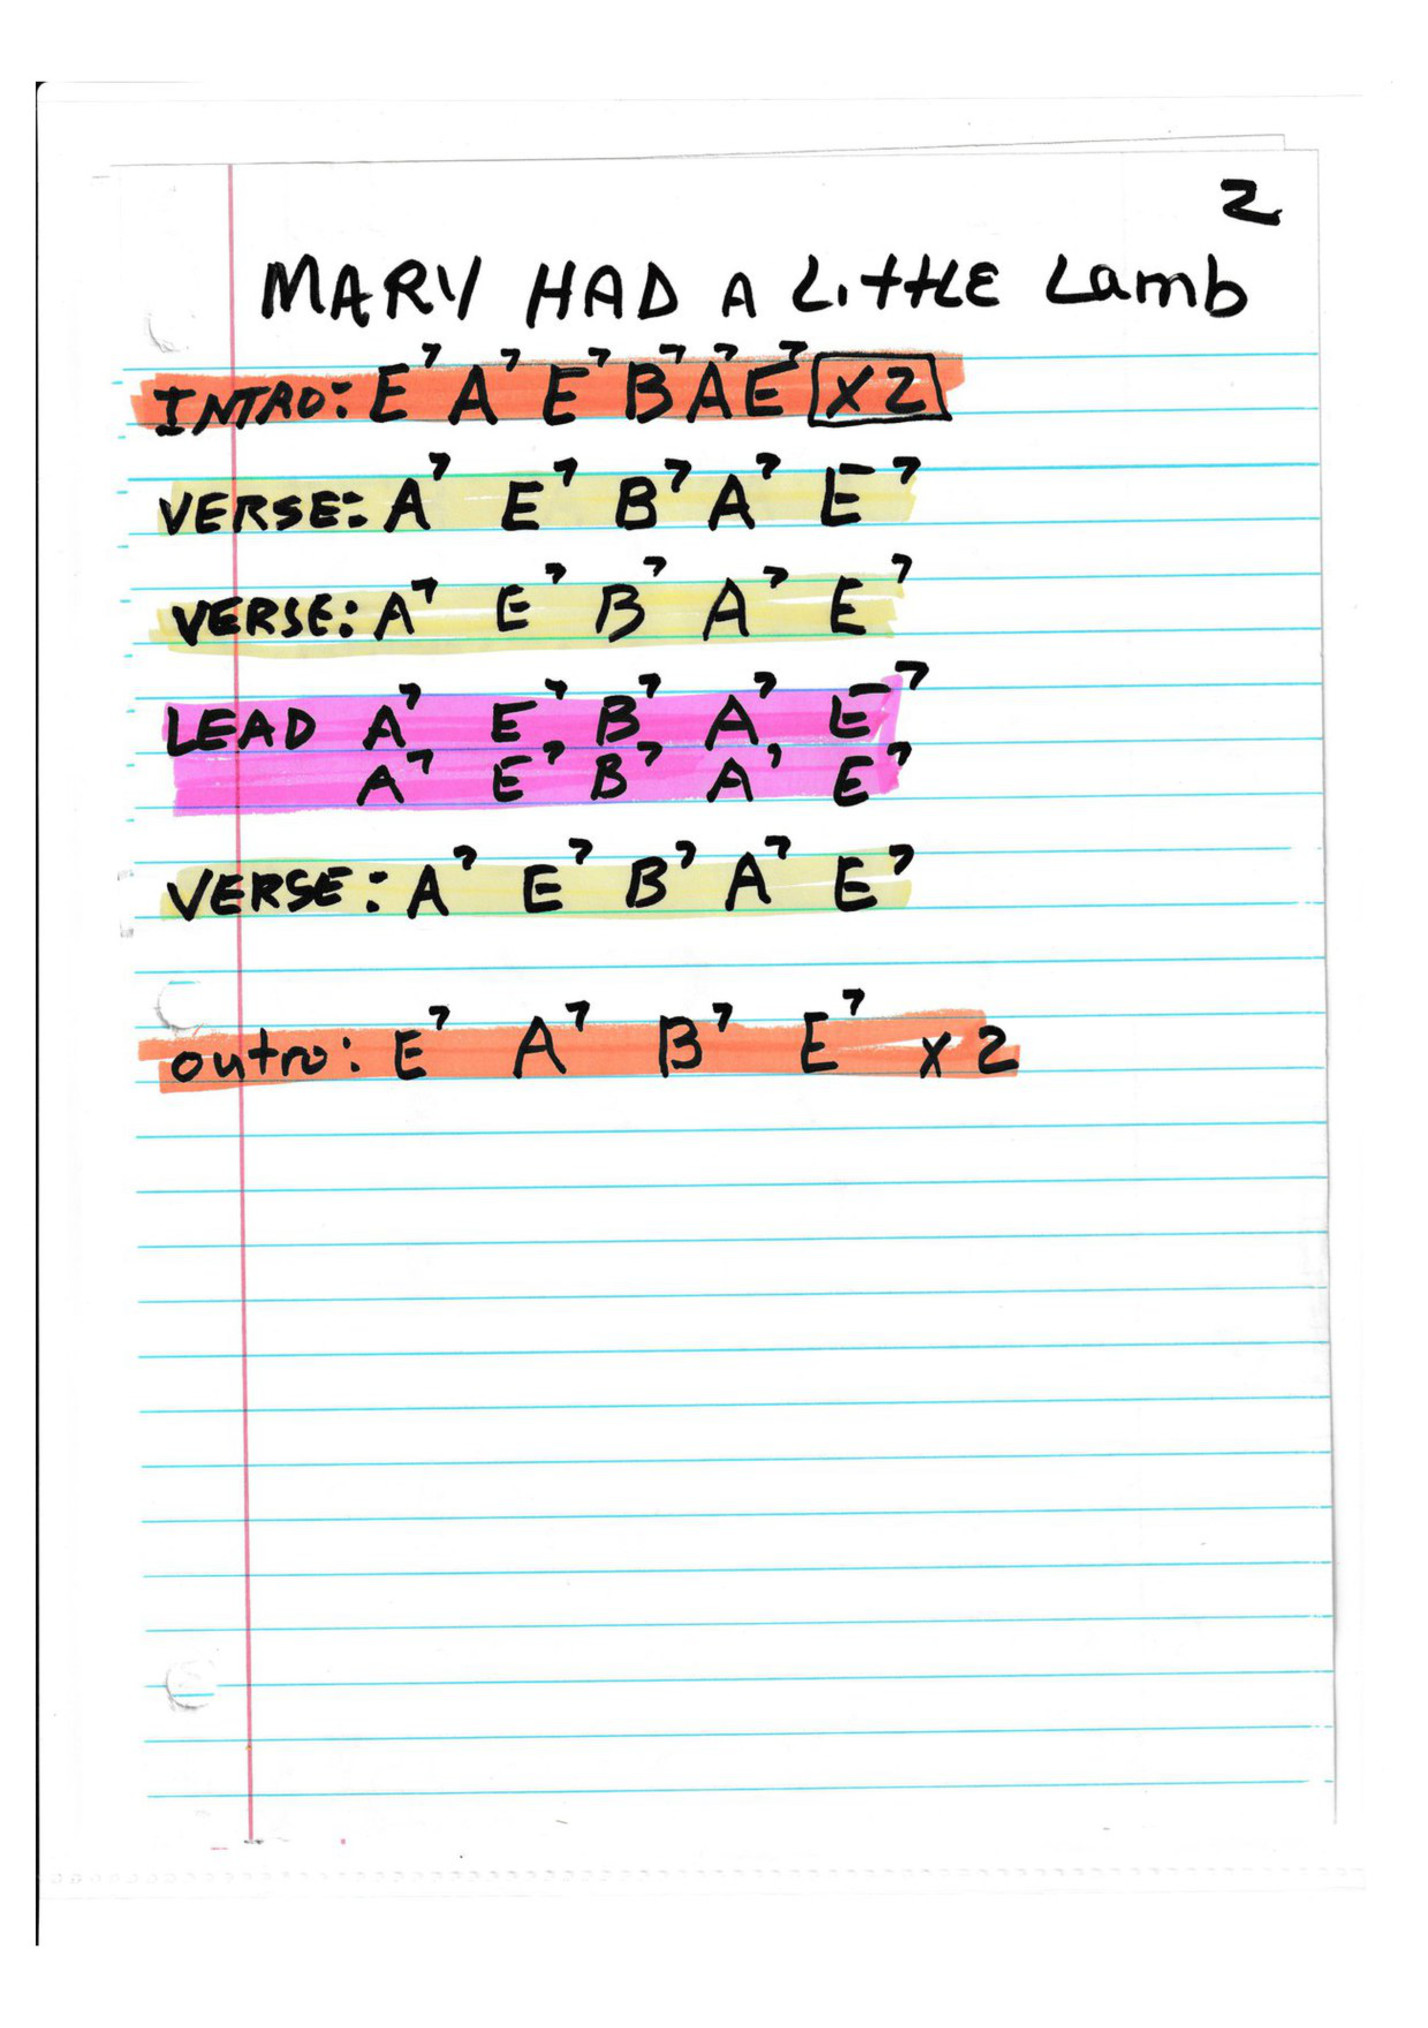 2
MARY HAD A LittLE Lamb
INTRO: E7 A7 E7 B7 A7 E7 x2
VERSE: A7 E7 B7 A7 E7
VERSE: A7 E7 B7 A7 E7
LEAD A7 E7 B7 A7 E7
A7 E7 B7 A7 E7
VERSE: A7 E7 B7 A7 E7
outro: E7 A7 B7 E7 x2